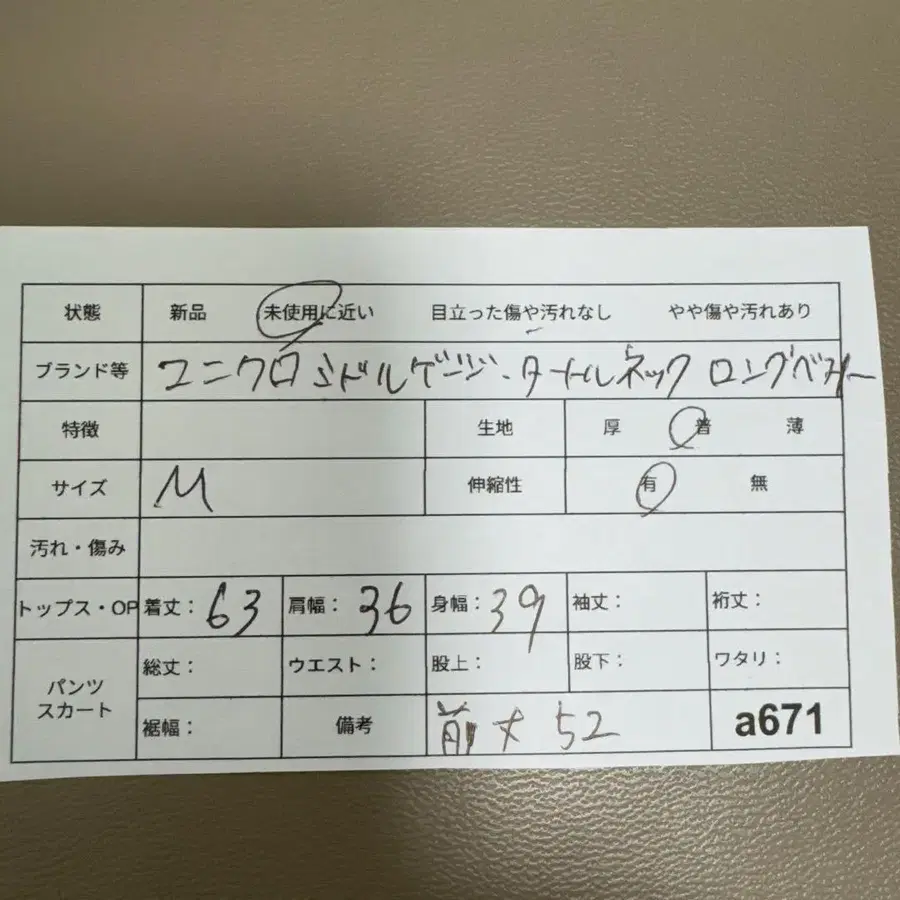 状態 新品 未使用に近い 目立った傷や汚れなし やや傷や汚れあり
ブランド等 ユニクロ ミドルゲージ・タートルネック ロング
特徴 生地 厚 普 薄
サイズ M 伸縮性 有 無
汚れ・傷み
トップス・OP 着丈: 63 肩幅: 36 身幅: 39 袖丈: 裄丈:
パンツ スカート 総丈: ウエスト: 股上: 股下: ワタリ:
裾幅: 備考 前丈 52 a671